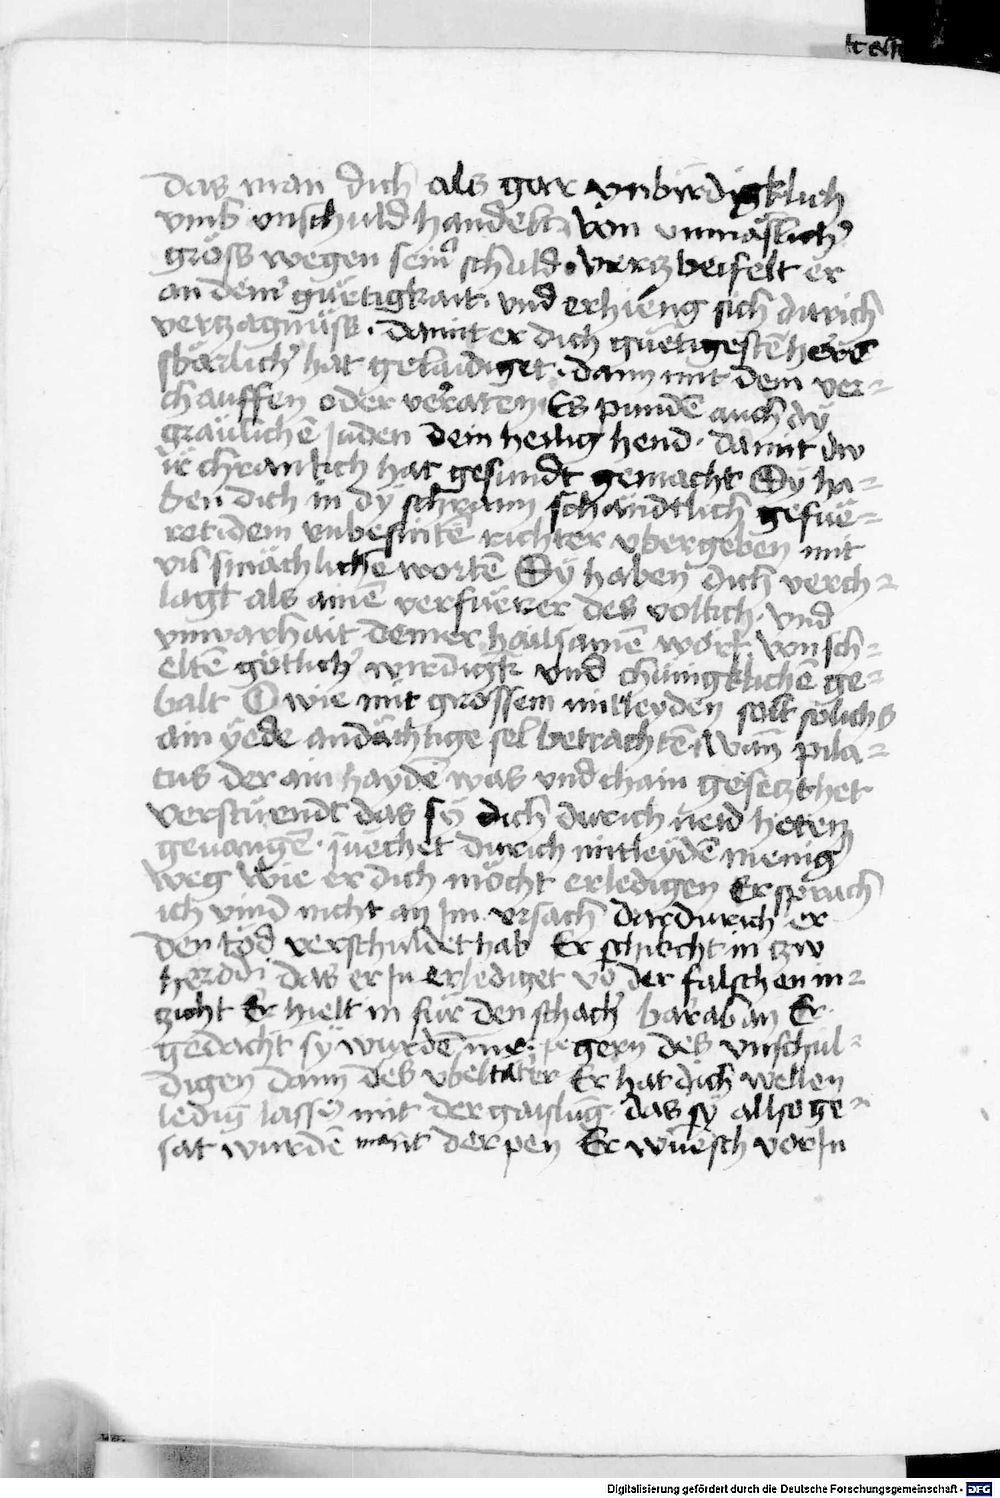 das man dich als gar vnbirdigklich
vmb vnschuld handelt, von vnmäslicher
grösß wegen seinr schuld. vertzbeifelt er
an deiner güetigkait. vnd erhieng sich durich
vertzagnüsß. damit er dich güetigesten herē
sbärlicher hat gelaidiget. dann mit dem ver=
chauffen oder veraten. Es punden auch dÿ
gräulichē Juden dein heilig hend. damit dw
ir chranklich hat gesundt gemacht Sÿ ha=
ben dich in dÿ schrann schändtlich gefüe=
ret dem vnbesintē richter vbergeben mit
vil smächlichē wortē Sÿ haben dich verch=
lagt als ainē verfüerer des volkch. vnd
vnwarhait deiner hailsamē wort. von sch=
eltē götlicher wirdigk vnd chünigklichē ge=
balt O wie mit grossem mitleyden solt sölichs
ain ÿede andächtige sel betrachtē. Wan pila=
tus der ain haydē was vnd chain gesetzt het
verstüendt das sÿ dich durich neid heten
geuangē. suechet durich mitleydē meniger
weg Wie er dich möcht erledigen Er sprach
ich vind nicht an Im vrsach dardurich er
den tod verschuldet hab Er schikcht in zw
herodi das er In erlediget vō der falschen in=
zicht Er hielt in für den schacher baraban Er
gedacht sÿ wurdē gern des vnschul=
digen dann des vbeltäter Er hat dich wellen
ledig lassē mit der gaislūg. das sÿ allso ge=
sat wurdē mit der pen Er wuesch vor In
tell
Digitalisierung gefördert durch die Deutsche Forschungsgemeinschaft - DFG